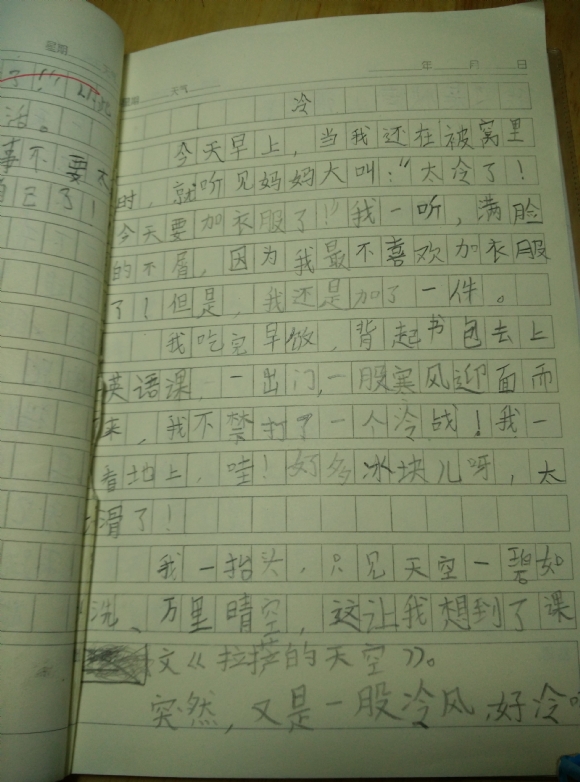 星期
了！”
天气
活。
事不要太
自己了！
年 月 日
星期 天气
冷
今天早上，当我还在被窝里
时，就听见妈妈大叫：“太冷了！
今天要加衣服了！”我一听，满脸
的不屑，因为我最不喜欢加衣服
了！但是，我还是加了一件。
我吃完早饭，背起书包去上
英语课，一出门，一股寒风迎面而
来，我不禁打了一个冷战！我一
看地上，哇！好多冰块儿呀，太
滑了！
我一抬头，只见天空一碧如
洗、万里晴空，这让我想到了课
文《拉萨的天空》。
突然，又是一股冷风，好冷